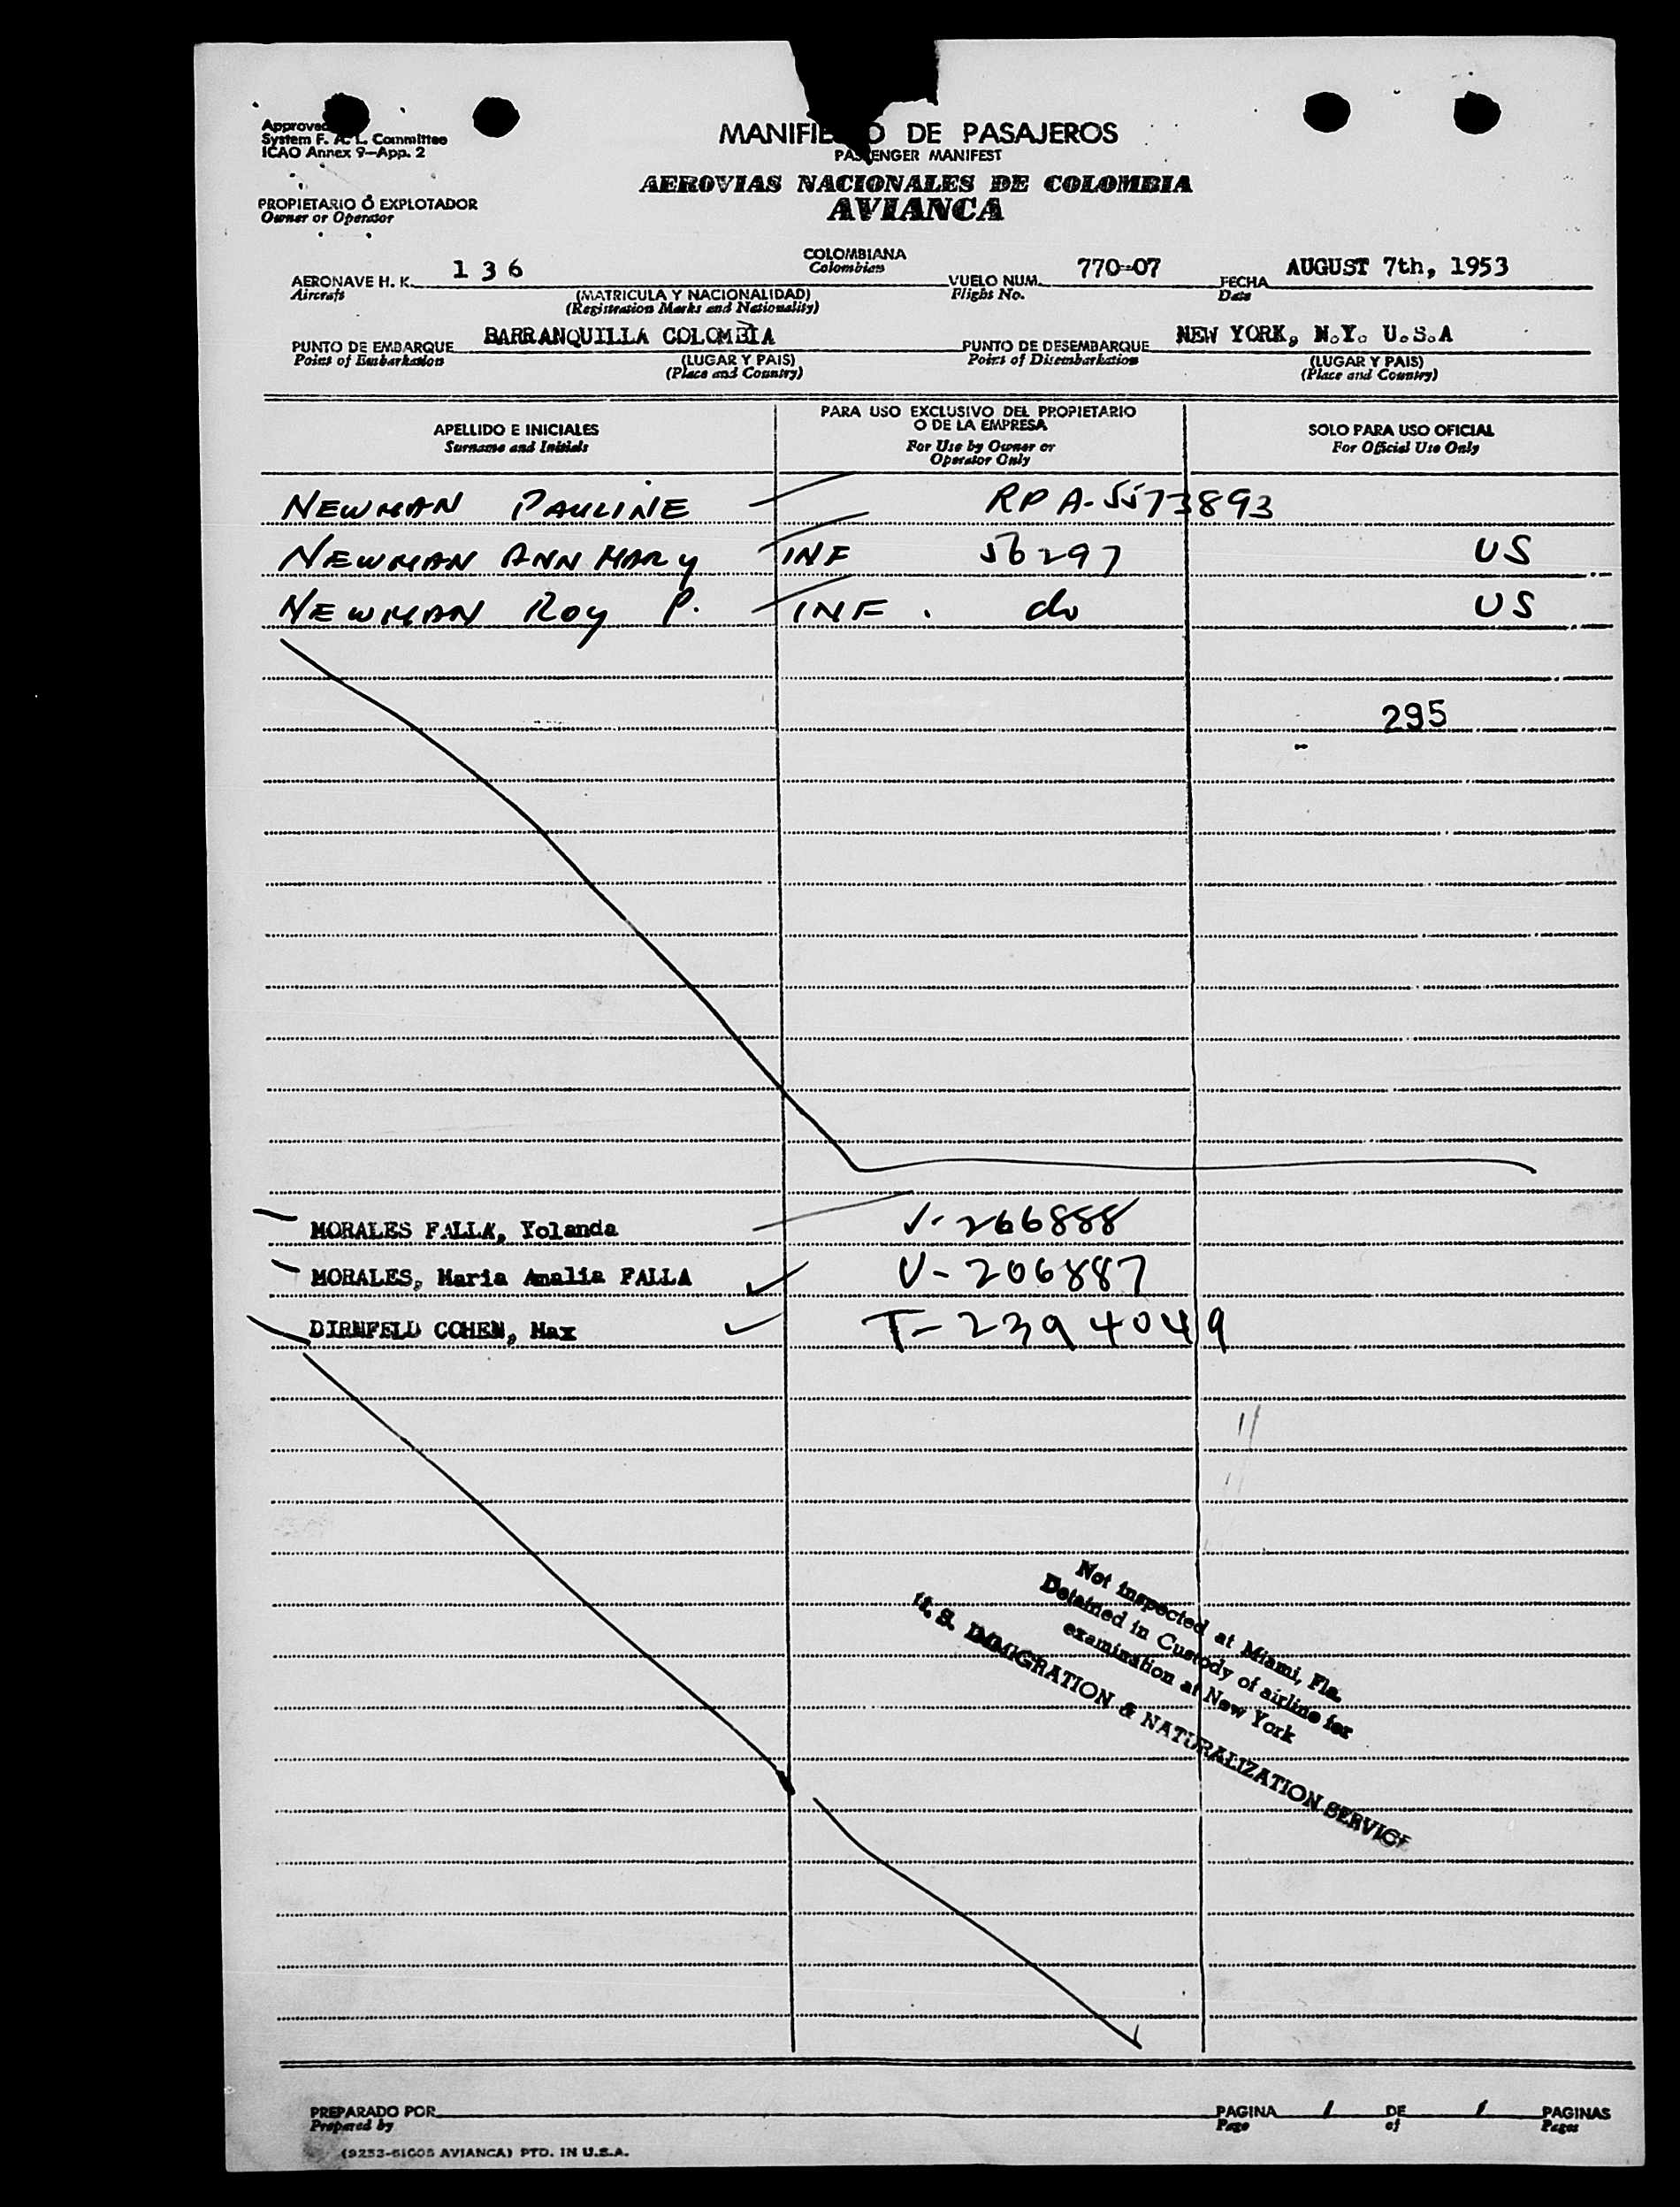 Approved
System F. A. L. Committee
ICAO Annex 9—App. 2
MANIFIE O DE PASAJEROS
PASSENGER MANIFEST
AEROVIAS NACIONALES DE COLOMBIA
AVIANCA
PROPIETARIO Ó EXPLOTADOR
Owner or Operator
AERONAVE H. K. 1 3 6 COLOMBIANA VUELO NUM. 770-07 FECHA AUGUST 7th, 1953
Aircraft (MATRICULA Y NACIONALIDAD) Colombian Flight No. Date
(Registration Marks and Nationality)
PUNTO DE EMBARQUE BARRANQUILLA COLOMBIA PUNTO DE DESEMBARQUE NEW YORK, N.Y. U.S.A
Point of Embarkation (LUGAR Y PAIS) Point of Disembarkation (LUGAR Y PAIS)
(Place and Country) (Place and Country)
APELLIDO E INICIALES
Surname and Initials
PARA USO EXCLUSIVO DEL PROPIETARIO
O DE LA EMPRESA
For Use by Owner or
Operator Only
SOLO PARA USO OFICIAL
For Official Use Only
NEWMAN PAULINE RP A-5573893
NEWMAN ANN MARY INF 56297 US
NEWMAN ROY P. INF. do US
295
MORALES FALLA, Yolanda V-266888
MORALES, Maria Amalia FALLA V-206887
DIRNFELD COHEN, Max T-2394049
Not inspected at Miami, Fla.
Detained in Custody of airline for
examination at New York
U. S. IMMIGRATION & NATURALIZATION SERVICE
PREPARADO POR PAGINA 1 DE 1 PAGINAS
Prepared by Page of Pages
(9253-51005 AVIANCA) PTD. IN U.S.A.